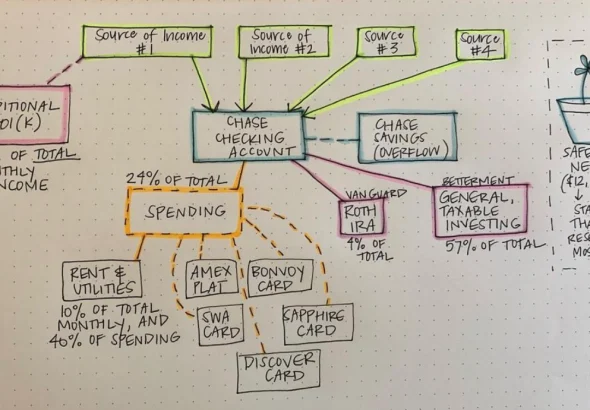 Source of Income
#1
Source of
Income #2
Source
#3
Source
#4
ITIONAL
01(K)
OF TOTAL
NTHLY
NCOME
CHASE
CHECKING
ACCOUNT
CHASE
SAVINGS
(OVERFLOW)
24% OF TOTAL
SPENDING
VANGUARD
ROTH
IRA
4% OF
TOTAL
BETTERMENT
GENERAL,
TAXABLE
INVESTING
57% OF TOTAL
RENT &
UTILITIES
10% OF TOTAL
MONTHLY, AND
40% OF SPENDING
AMEX
PLAT
BONVOY
CARD
SWA
CARD
SAPPHIRE
CARD
DISCOVER
CARD
SAFE
NE
($12,
STA
THA
RESE
MOS